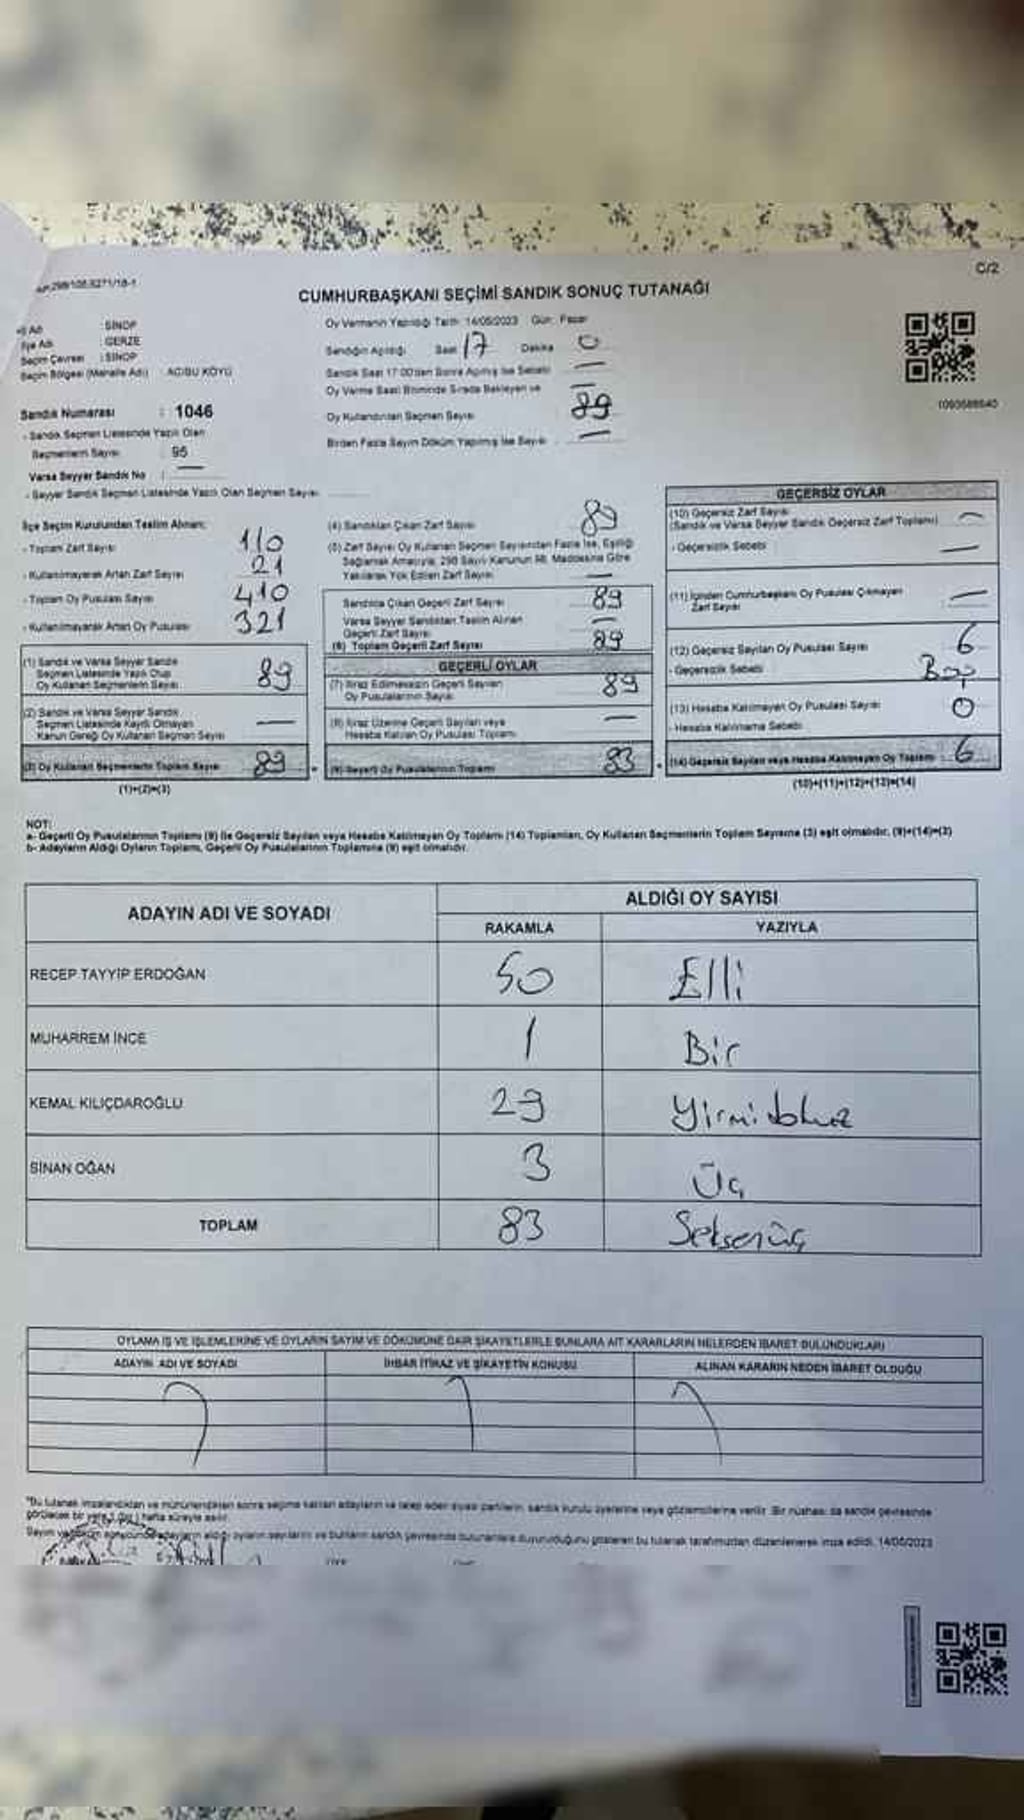 C/2
CUMHURBAŞKANI SEÇİMİ SANDIK SONUÇ TUTANAĞI
: SİNOP
: GERZE
: SİNOP
ACISU KÖYÜ
Oy Vermenin Yapıldığı Tarih: 14/05/2023 Gün: Pazar
Sandığın Açıldığı Saat 17 Dakika 0
Sandık Saat 17:00'den Sonra Açılmış İse Sebebi —
Oy Verme Saati Bitiminde Sırada Bekleyen ve —
Oy Kullandırılan Seçmen Sayısı 89
Birden Fazla Sayım Döküm Yapılmış İse Sayısı —
Sandık Numarası : 1046
- Sandık Seçmen Listesinde Yazılı Olan
Seçmenlerin Sayısı : 95
Varsa Seyyar Sandık No : —
- Seyyar Sandık Seçmen Listesinde Yazılı Olan Seçmen Sayısı
İlçe Seçim Kurulundan Teslim Alınan;
- Toplam Zarf Sayısı 110
- Kullanılmayarak Artan Zarf Sayısı 21
- Toplam Oy Pusulası Sayısı 410
- Kullanılmayarak Artan Oy Pusulası 321
(1) Sandık ve Varsa Seyyar Sandık
Seçmen Listesinde Yazılı Olup
Oy Kullanan Seçmenlerin Sayısı 89
(2) Sandık ve Varsa Seyyar Sandık
Seçmen Listesinde Kayıtlı Olmayan
Kanun Gereği Oy Kullanan Seçmen Sayısı —
(3) Oy Kullanan Seçmenlerin Toplam Sayısı 89
(1)+(2)=(3)
(4) Sandıktan Çıkan Zarf Sayısı 89
(5) Zarf Sayısı Oy Kullanan Seçmen Sayısından Fazla İse, Eşitliği
Sağlamak Amacıyla, 298 Sayılı Kanunun 98. Maddesine Göre
Yakılarak Yok Edilen Zarf Sayısı —
Sandıkta Çıkan Geçerli Zarf Sayısı 89
Varsa Seyyar Sandıktan Teslim Alınan
Geçerli Zarf Sayısı —
(6) Toplam Geçerli Zarf Sayısı 89
GEÇERLİ OYLAR
(7) İtiraz Edilmeksizin Geçerli Sayılan
Oy Pusulalarının Sayısı 89
(8) İtiraz Üzerine Geçerli Sayılan veya
Hesaba Katılan Oy Pusulası Toplamı —
(9) Geçerli Oy Pusulalarının Toplamı 83
GEÇERSİZ OYLAR
(10) Geçersiz Zarf Sayısı
(Sandık ve Varsa Seyyar Sandık Geçersiz Zarf Toplamı) —
- Geçersizlik Sebebi —
(11) İçinden Cumhurbaşkanı Oy Pusulası Çıkmayan
Zarf Sayısı —
(12) Geçersiz Sayılan Oy Pusulası Sayısı 6
- Geçersizlik Sebebi Boş
(13) Hesaba Katılmayan Oy Pusulası Sayısı 0
- Hesaba Katılmama Sebebi
(14) Geçersiz Sayılan veya Hesaba Katılmayan Oy Toplamı 6
(10)+(11)+(12)+(13)=(14)
NOT:
a- Geçerli Oy Pusulalarının Toplamı (9) ile Geçersiz Sayılan veya Hesaba Katılmayan Oy Toplamı (14) Toplamları, Oy Kullanan Seçmenlerin Toplam Sayısına (3) eşit olmalıdır. (9)+(14)=(3)
b- Adayların Aldığı Oyların Toplamı, Geçerli Oy Pusulalarının Toplamına (9) eşit olmalıdır.
ADAYIN ADI VE SOYADI
ALDIĞI OY SAYISI
RAKAMLA YAZIYLA
RECEP TAYYİP ERDOĞAN 50 Elli
MUHARREM İNCE 1 Bir
KEMAL KILIÇDAROĞLU 29 Yirmidokuz
SİNAN OĞAN 3 Üç
TOPLAM 83 Seksenüç
OYLAMA İŞ VE İŞLEMLERİNE VE OYLARIN SAYIM VE DÖKÜMÜNE DAİR ŞİKAYETLERLE BUNLARA AİT KARARLARIN NELERDEN İBARET BULUNDUKLARI
ADAYIN ADI VE SOYADI İHBAR İTİRAZ VE ŞİKAYETİN KONUSU ALINAN KARARIN NEDEN İBARET OLDUĞU
"Bu tutanak imzalandıktan ve mühürlendikten sonra seçime katılan adayların ve talep eden siyasi partilerin, sandık kurulu üyelerine veya gözlemcilerine verilir. Bir nüshası da sandık çevresinde
görülecek bir yere 1 (bir) hafta süreyle asılır.
Sayım ve döküm sonucunda adayların aldığı oyların sayılarını ve bunların sandık çevresinde bulunanlara duyurulduğunu gösteren bu tutanak tarafımızdan düzenlenerek imza edildi. 14/05/2023